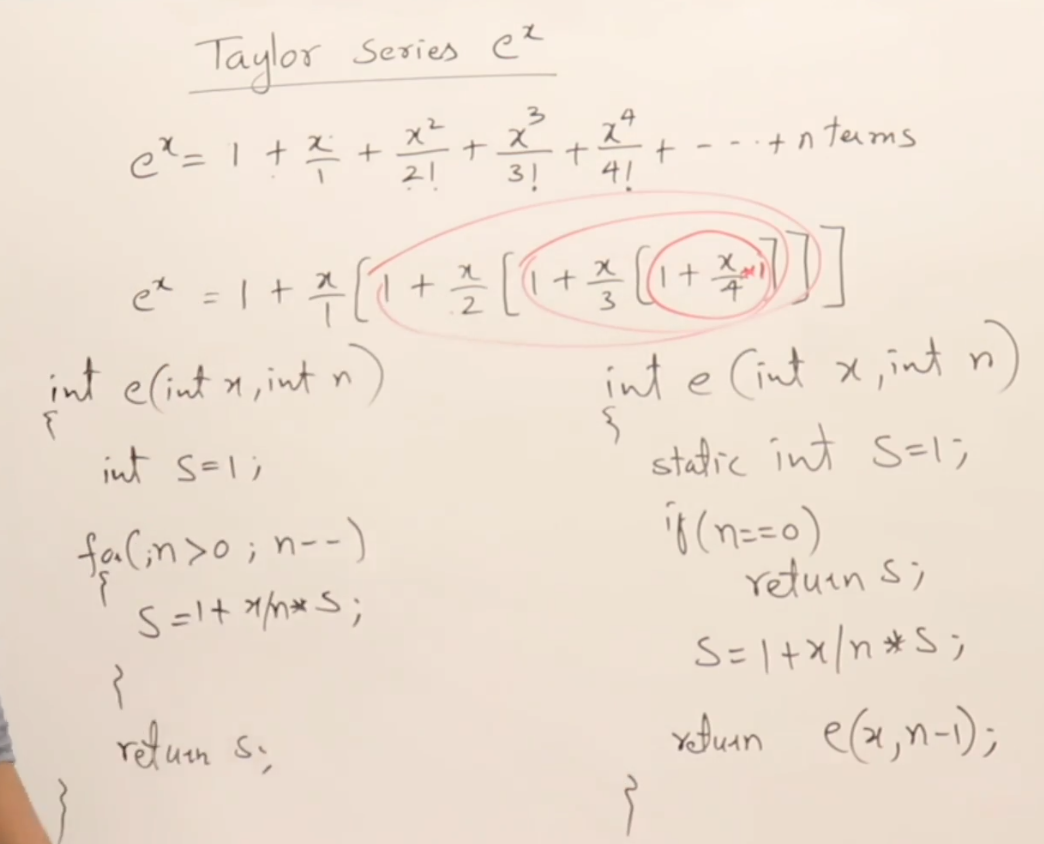 Taylor Series eˣ
eˣ = 1 + x/1 + x²/2! + x³/3! + x⁴/4! + - - - + n terms
eˣ = 1 + x/1 [1 + x/2 [1 + x/3 [1 + x/4 *1]]]
int e(int x, int n)
{
int S=1;
for(;n>0; n--)
{
S=1+x/n*S;
}
return s;
}
int e(int x, int n)
{
static int S=1;
if(n==0)
return s;
S=1+x/n*S;
return e(x,n-1);
}